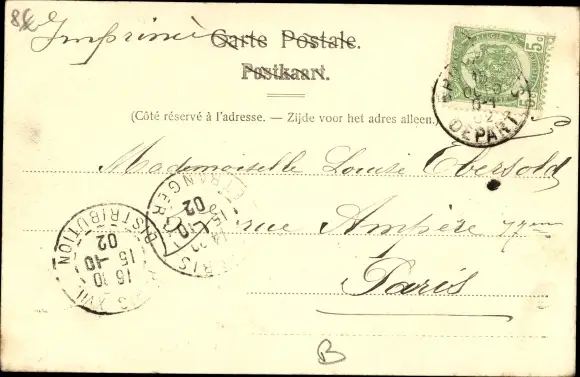 86
Imprimé
Carte Postale.
Postkaart.
5c
DEPART
(Côté réservé à l'adresse. — Zijde voor het adres alleen.)
Mademoiselle Louise Ebersold
rue Ampère 17me
Paris
PARIS ETRANGER
02
PARIS XVII DISTRIBUTION
16 30
15 -10
02
B